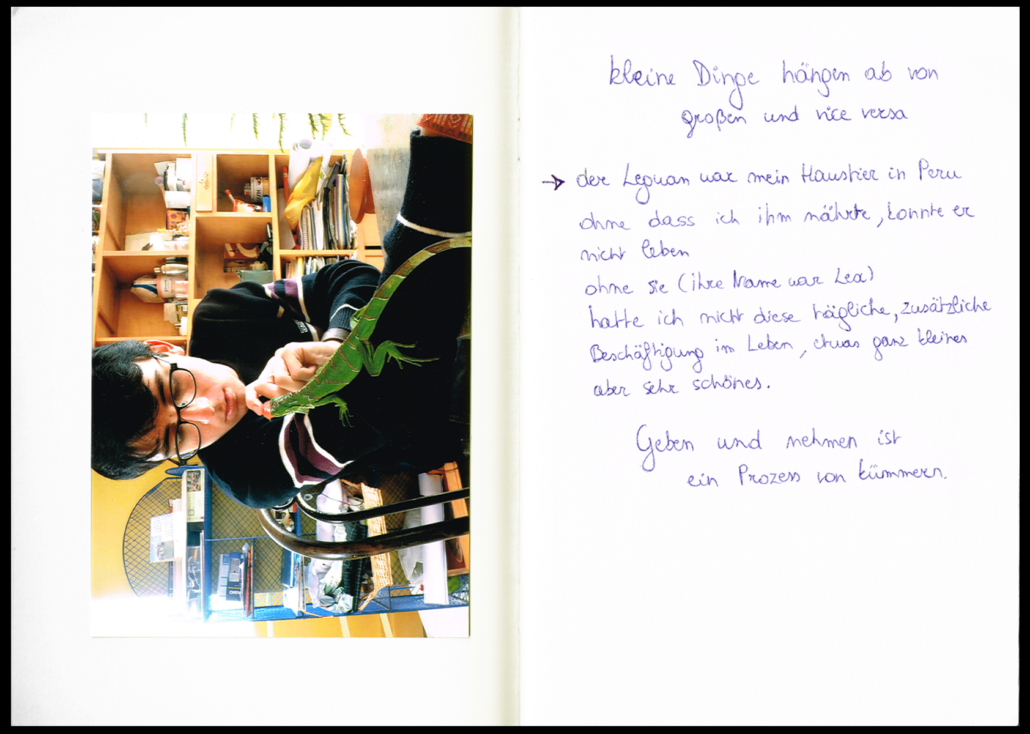 kleine Dinge hängen ab von
großen und vice versa
→ der Leguan war mein Haustier in Peru
ohne dass ich ihm nährte, konnte er
nicht leben
ohne sie (ihre Name war Lea)
hatte ich nicht diese tägliche, zusätzliche
Beschäftigung im Leben, etwas ganz kleines
aber sehr schönes.
Geben und nehmen ist
ein Prozess von kümmern.